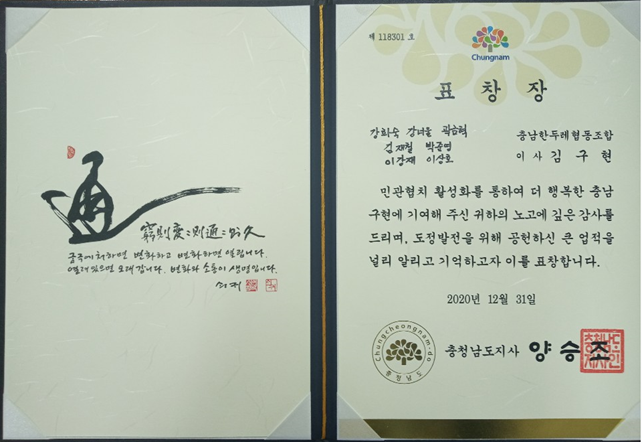 通
窮則變 變則通 通則久
궁극에 처하면 변화하고 변화하면 열립니다.
열려있으면 오래갑니다. 변화와 소통이 생명입니다.
제 118301 호
Chungnam
표 창 장
강화숙 강녀울 곽승혁
김재철 박준영
이강재 이상호
충남한두레협동조합
이사 김 구 현
민관협치 활성화를 통하여 더 행복한 충남
구현에 기여해 주신 귀하의 노고에 깊은 감사를
드리며, 도정발전을 위해 공헌하신 큰 업적을
널리 알리고 기억하고자 이를 표창합니다.
2020년 12월 31일
Chungcheongnam-do
충청남도
충청남도지사 양 승 조